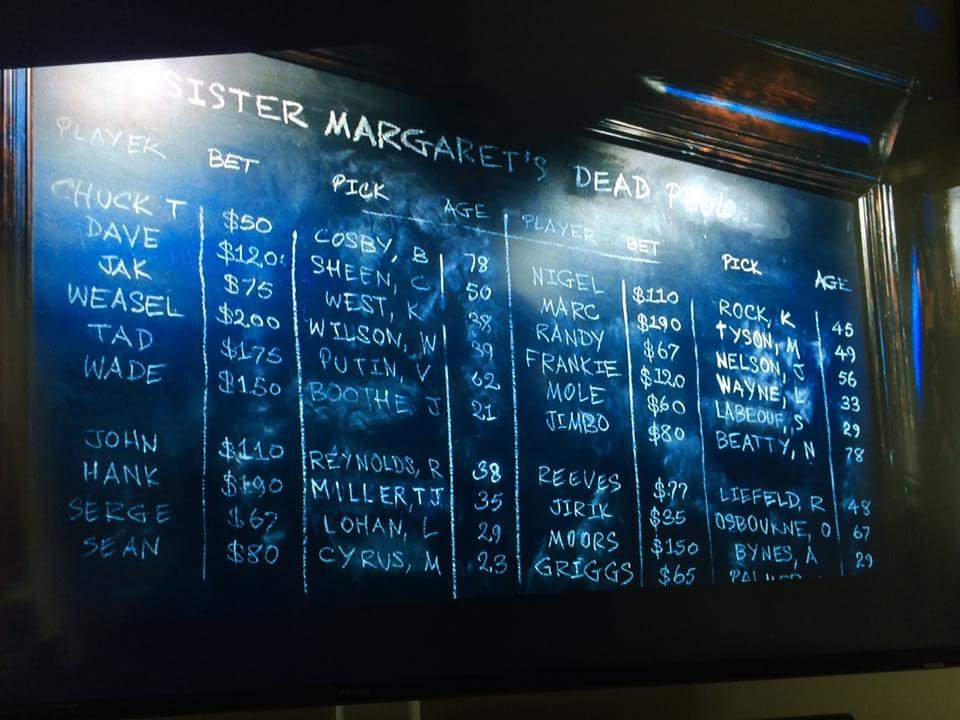 SISTER MARGARET'S DEAD POOL
PLAYER BET PICK AGE PLAYER BET PICK AGE
CHUCK T $50 COSBY, B 78 NIGEL $110 ROCK, K 45
DAVE $120 SHEEN, C 50 MARC $190 TYSON, M 49
JAK $75 WEST, K 38 RANDY $67 NELSON, J 56
WEASEL $200 WILSON, W 39 FRANKIE $120 WAYNE, L 33
TAD $175 PUTIN, V 62 MOLE $60 LABEOUF, S 29
WADE $150 BOOTHE J 21 JIMBO $80 BEATTY, N 78
JOHN $110 REYNOLDS, R 38 REEVES $77 LIEFELD, R 48
HANK $190 MILLER TJ 35 JIRIK $35 OSBOURNE, O 67
SERGE $67 LOHAN, L 29 MOORS $150 BYNES, A 29
SEAN $80 CYRUS, M 23 GRIGGS $65